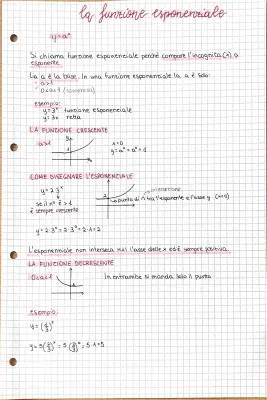 la funzione esponenziale
y=aˣ
Si chiama funzione esponenziale perché compare l'incognita (x) a
esponente.
La a è la base. In una funzione esponenziale la a è solo:
a>1
0<a<1
esempio:
y=3ˣ funzione esponenziale
y=3x retta
LA FUNZIONE CRESCENTE
a>1
x=0
y=aˣ=a⁰=1
COME DISEGNARE L'ESPONENZIALE
y=2·3ˣ
punto di
tra l'esponente e l'asse y (x=0)
se il n° è >1
è sempre crescente
y=2·3ˣ=2·3⁰=2·1=2
L'esponenziale non interseca mai l'asse delle x ed è sempre positiva.
LA FUNZIONE DECRESCENTE
0<a<1
In entrambe si manda solo il punto
esempio: